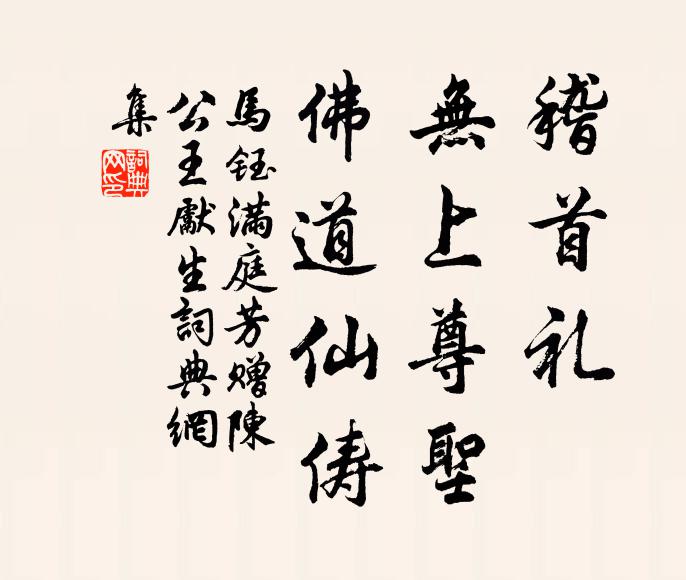 稽首礼
無上尊聖
佛道仙俦
馬鈺滿庭芳赠陳
公王獻生詞典網
集
詞典
网印